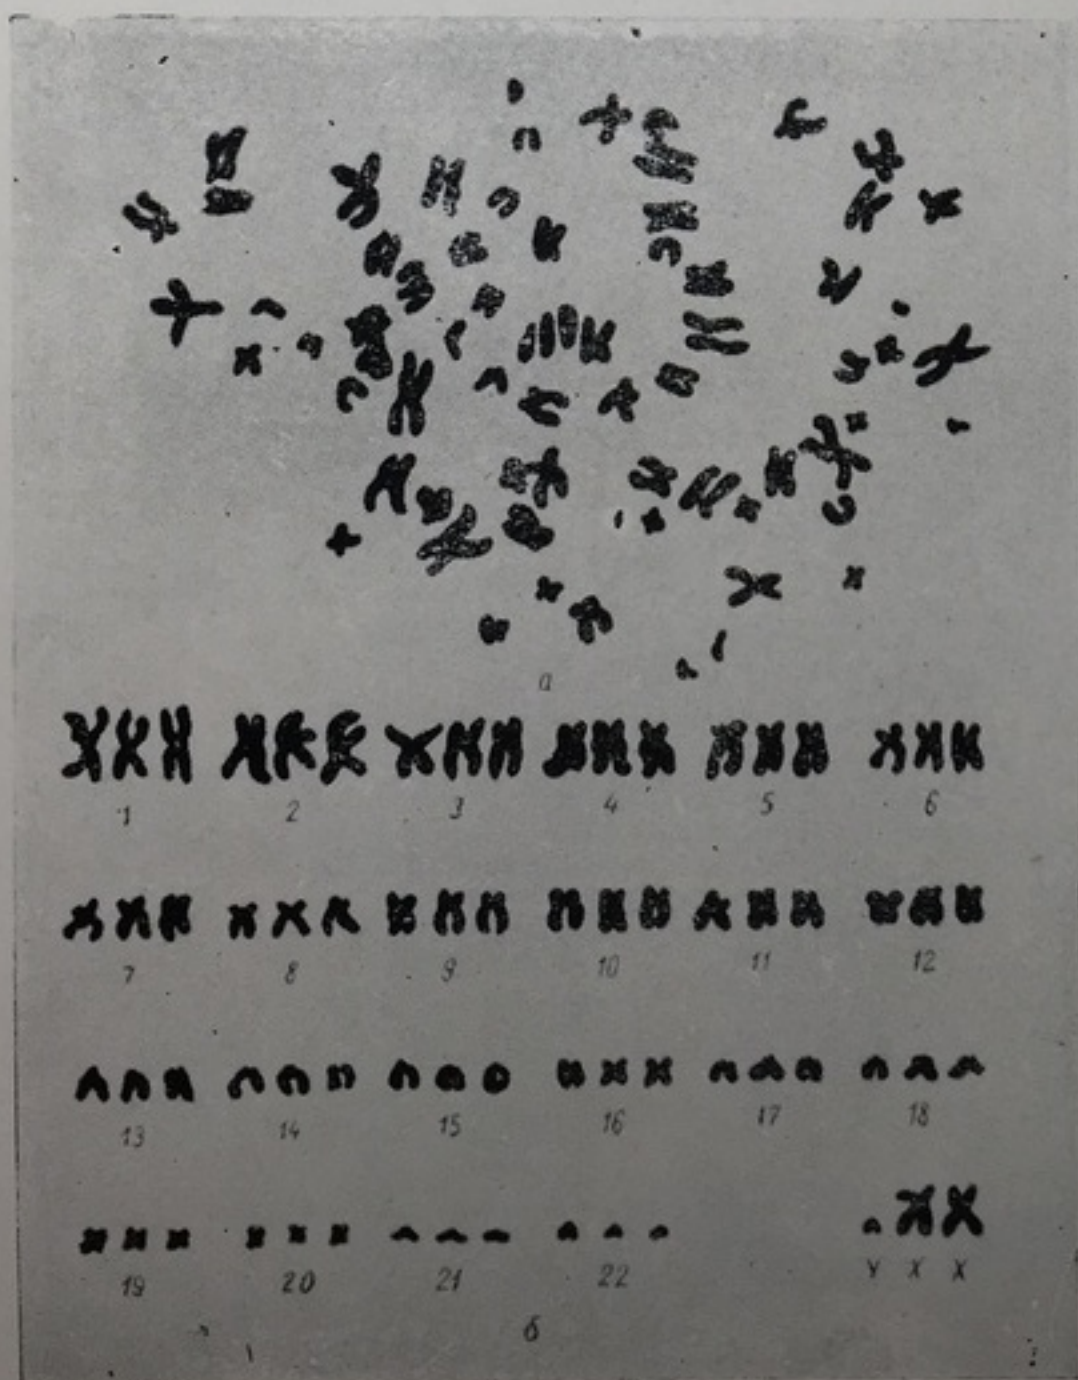 а
1 2 3 4 5 6
7 8 9 10 11 12
13 14 15 16 17 18
19 20 21 22 Y X X
б